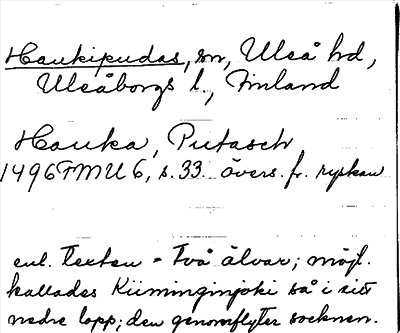 Haukipudas, sn, Uleå hd,
Uleåborgs l., Finland
Hauka, Putasch
1496 FMU 6, s. 33. övers. fr. ryskan
enl. texten = två älvar; möjl.
kallades Kiiminginjoki så i sitt
nedre lopp; den genomflyter socknen.